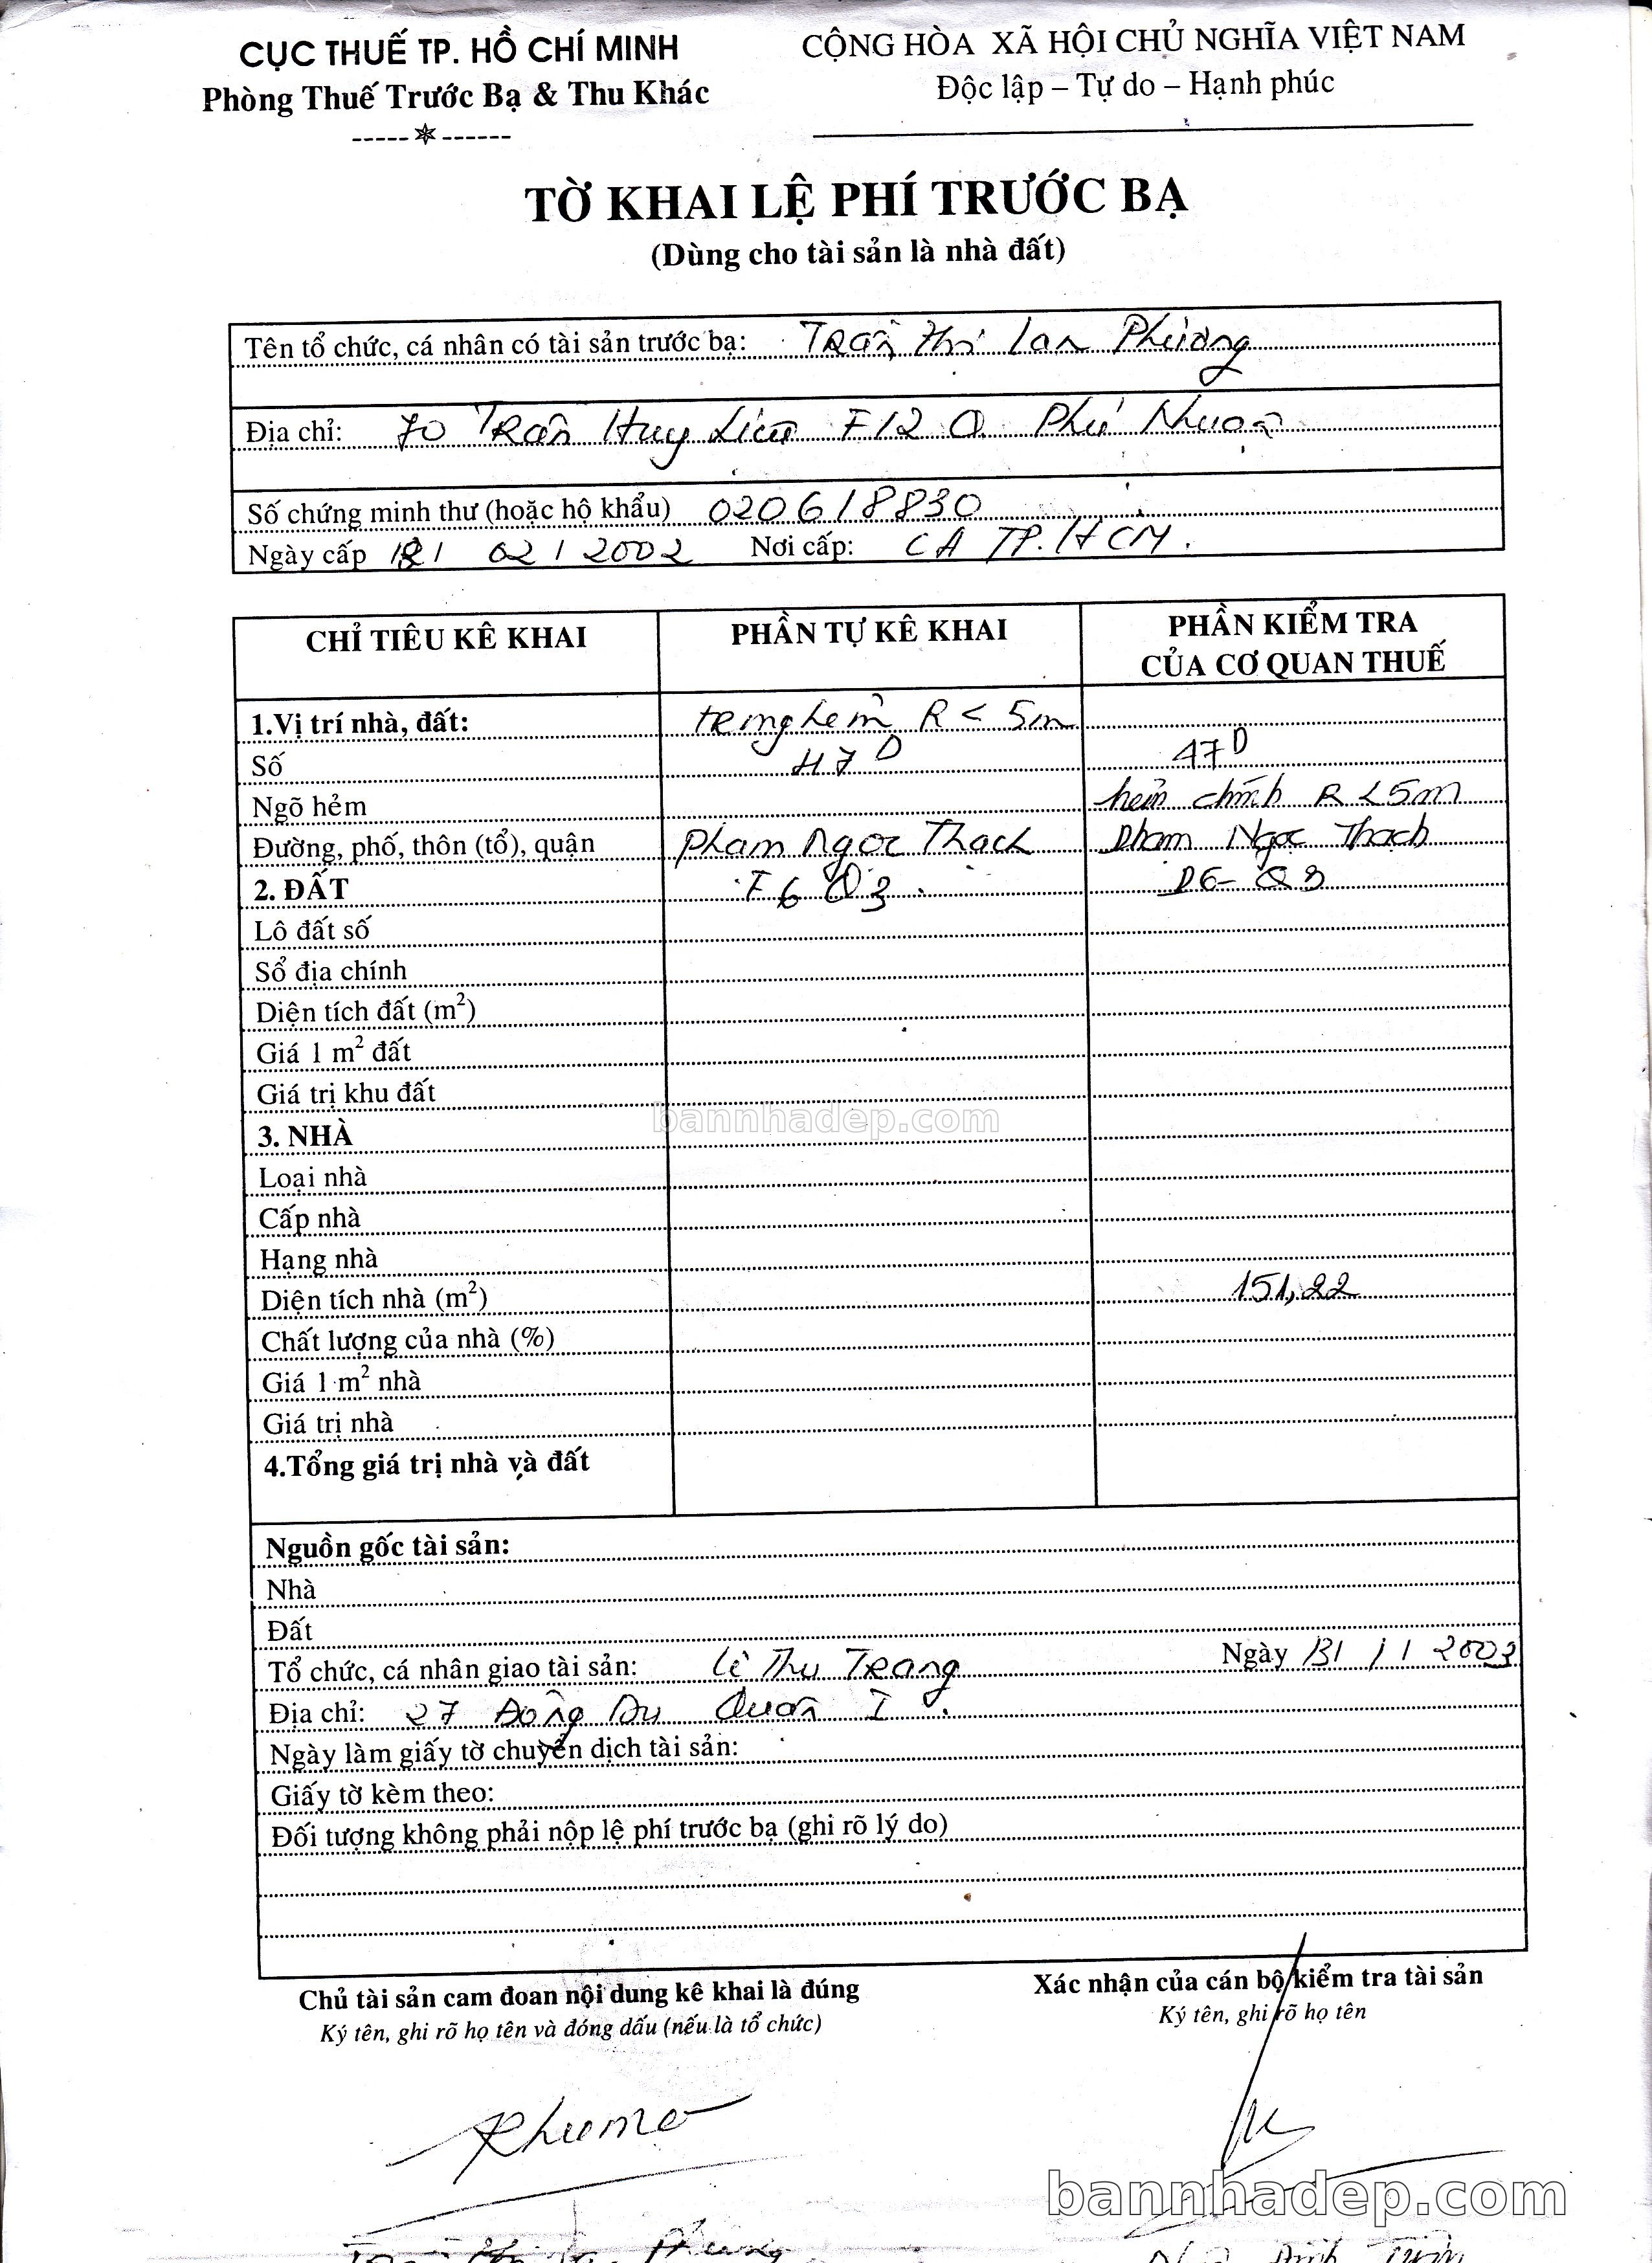 CỤC THUẾ TP. HỒ CHÍ MINH
Phòng Thuế Trước Bạ & Thu Khác
CỘNG HÒA XÃ HỘI CHỦ NGHĨA VIỆT NAM
Độc lập – Tự do – Hạnh phúc
TỜ KHAI LỆ PHÍ TRƯỚC BẠ
(Dùng cho tài sản là nhà đất)
Tên tổ chức, cá nhân có tài sản trước bạ: Trần Thị Lan Phương
Địa chỉ: 70 Trần Huy Liệu F12 Q. Phú Nhuận
Số chứng minh thư (hoặc hộ khẩu) 020618830
Ngày cấp 02 / 2002 Nơi cấp: CA TP. HCM.
CHỈ TIÊU KÊ KHAI
PHẦN TỰ KÊ KHAI
PHẦN KIỂM TRA
CỦA CƠ QUAN THUẾ
1.Vị trí nhà, đất: trong hẻm R < 5m
Số 47D 47D
Ngõ hẻm hẻm chính R < 5m
Đường, phố, thôn (tổ), quận Phạm Ngọc Thạch Phạm Ngọc Thạch
2. ĐẤT F6 Q3. P6 - Q3
Lô đất số
Sổ địa chính
Diện tích đất (m²)
Giá 1 m² đất
Giá trị khu đất
3. NHÀ
bannhadep.com
Loại nhà
Cấp nhà
Hạng nhà
Diện tích nhà (m²) 151,22
Chất lượng của nhà (%)
Giá 1 m² nhà
Giá trị nhà
4.Tổng giá trị nhà và đất
Nguồn gốc tài sản:
Nhà
Đất
Tổ chức, cá nhân giao tài sản: Lê Thu Trang Ngày 13/ 11 2003
Địa chỉ: 27 Đông Du Quận I.
Ngày làm giấy tờ chuyển dịch tài sản:
Giấy tờ kèm theo:
Đối tượng không phải nộp lệ phí trước bạ (ghi rõ lý do)
Chủ tài sản cam đoan nội dung kê khai là đúng
Ký tên, ghi rõ họ tên và đóng dấu (nếu là tổ chức)
Xác nhận của cán bộ kiểm tra tài sản
Ký tên, ghi rõ họ tên
bannhadep.com